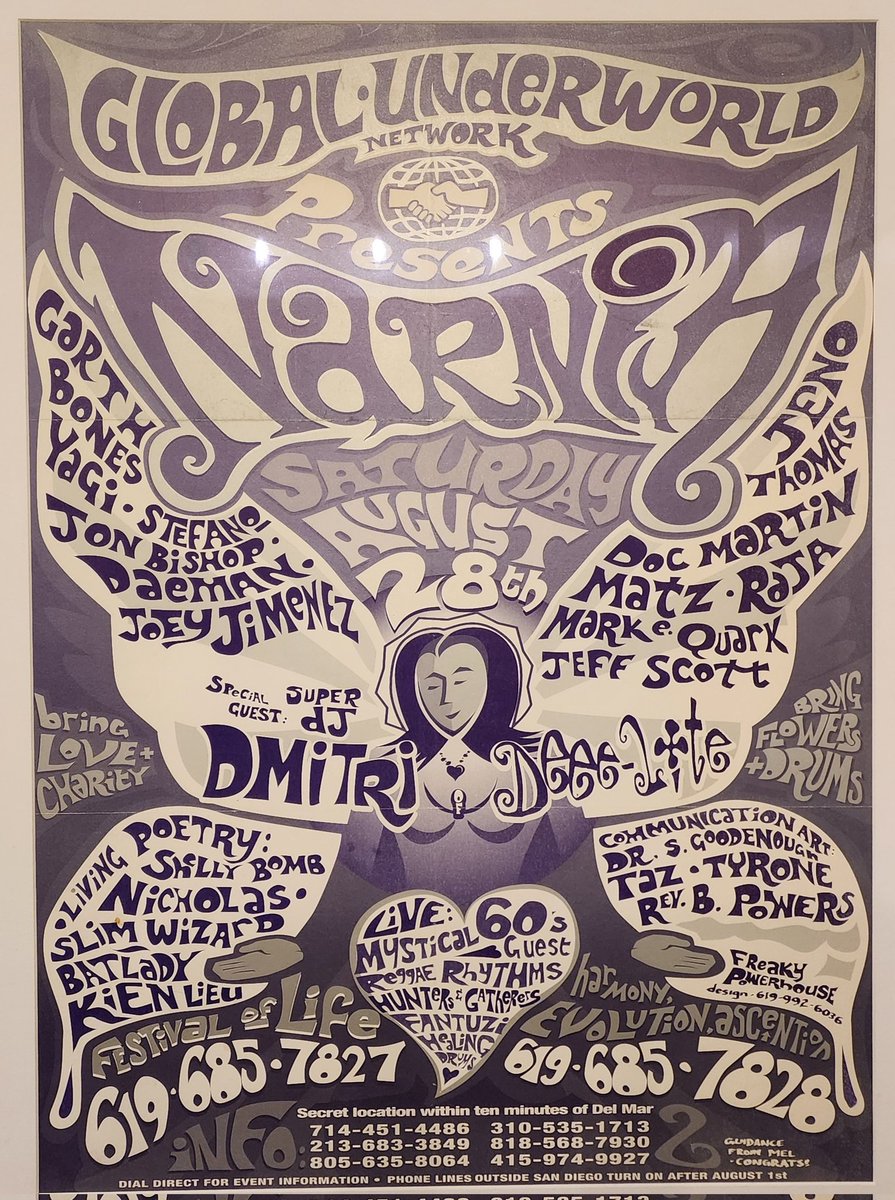 GLOBAL·UNDERWORLD
NETWORK
Presents
NARNIA
SATURDAY
AUGUST
28th
GARTH
BONES
YAGI · STEFANO ·
JON BISHOP
DAEMAN ·
JOEY JIMENEZ
JENO
THOMAS
DOC MARTIN
MATZ · RAJA
MARK E. QUARK
JEFF SCOTT
SPECIAL GUEST: SUPER DJ
DMITRI OF Deee-Lite
bring
LOVE +
CHARITY
BRING
FLOWERS
+ DRUMS
· LIVING POETRY:
SHELLY BOMB
NICHOLAS ·
SLIM WIZARD
BATLADY
KIEN LIEU
COMMUNICATION ART:
DR. S. GOODENOUGH
TAZ · TYRONE
REV. B. POWERS
FREAKY
POWERHOUSE
design · 619-992-6036
LIVE: 60's
MYSTICAL Guest
REGGAE RHYTHMS
HUNTERS & GATHERERS
FANTUZI
HEALING
DRUMS
FESTIVAL OF LIFE
harMONY,
EVOLUTION, ASCENTION
619·685·7827
619·685·7828
Secret location within ten minutes of Del Mar
INFO:
714-451-4486 310-535-1713
213-683-3849 818-568-7930
805-635-8064 415-974-9927
GUIDANCE
FROM MEL
·CONGRATS!
DIAL DIRECT FOR EVENT INFORMATION • PHONE LINES OUTSIDE SAN DIEGO TURN ON AFTER AUGUST 1st